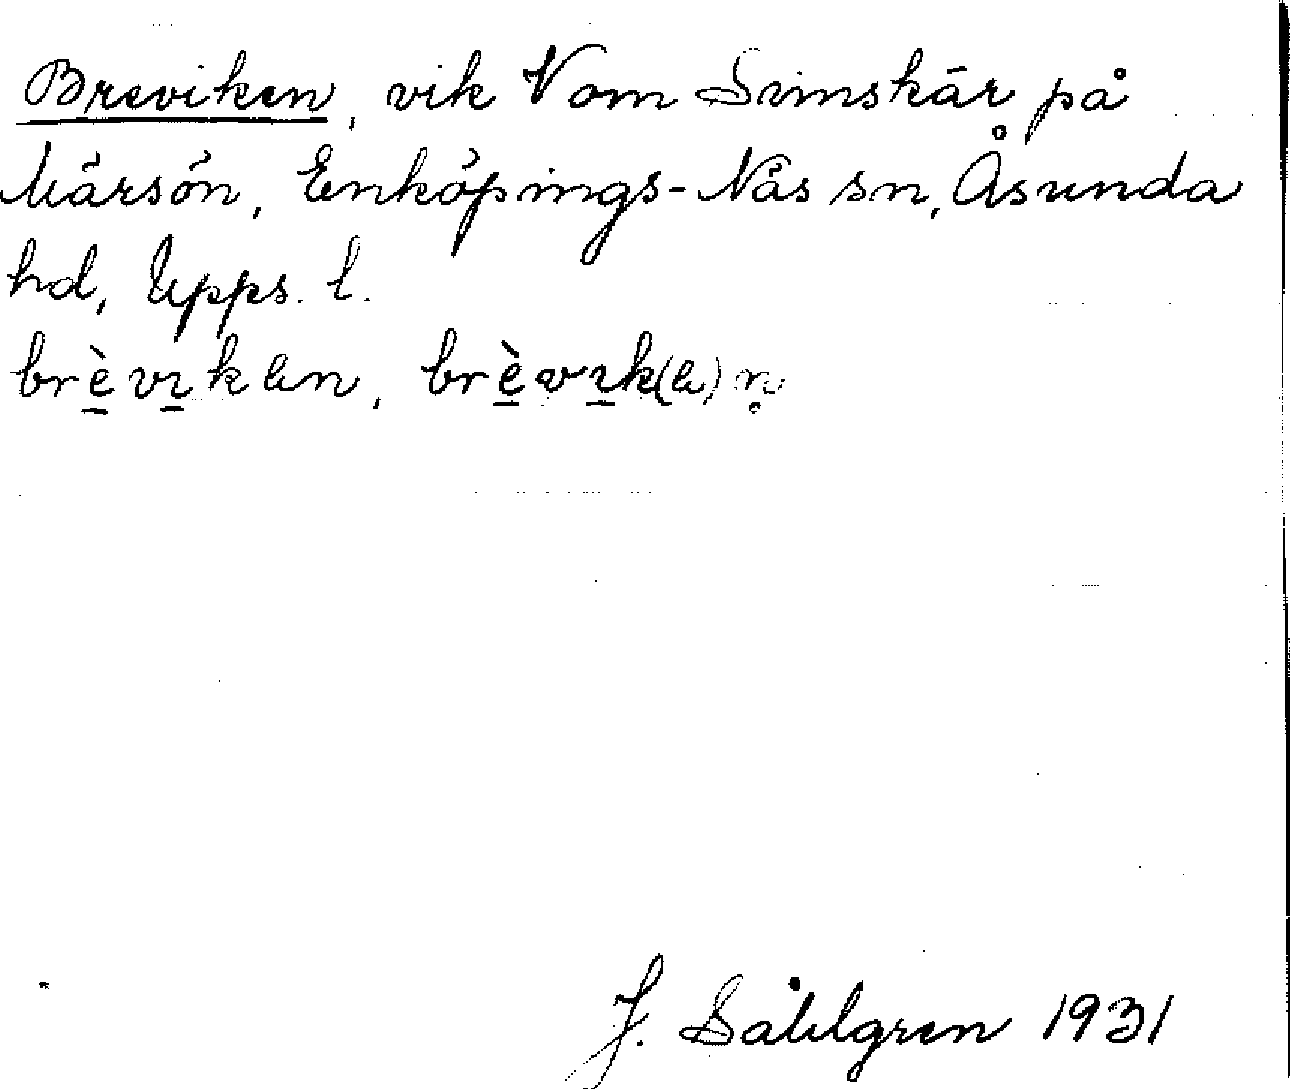 Breviken, vik V om Svinskär på
Märsön, Enköpings-Näs sn, Åsunda
hd, Upps. l.
brèvikən, brèvik(ə)n̥
J. Sahlgren 1931